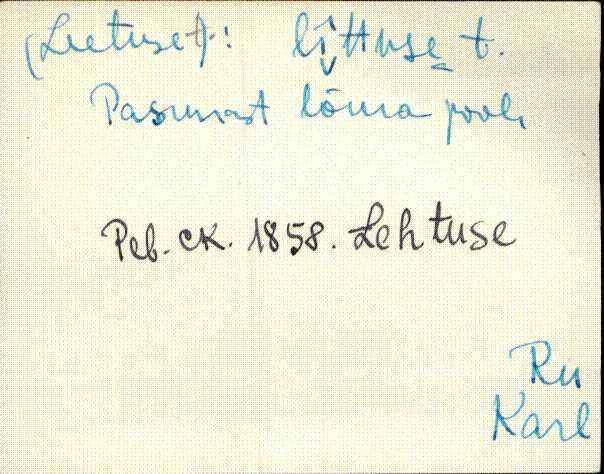 (Leetuse t.): li̬ttuse t.
Pasmast lõuna pool.
Реб. ск. 1858. Lehtuse
Ru
Karl